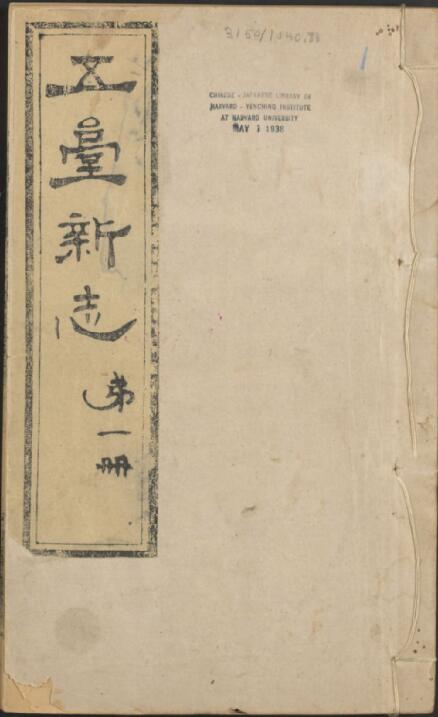 五臺新志
第一冊
3150/1540.88
1
CHINESE - JAPANESE LIBRARY OF
HARVARD - YENCHING INSTITUTE
AT HARVARD UNIVERSITY
MAY 1 1938